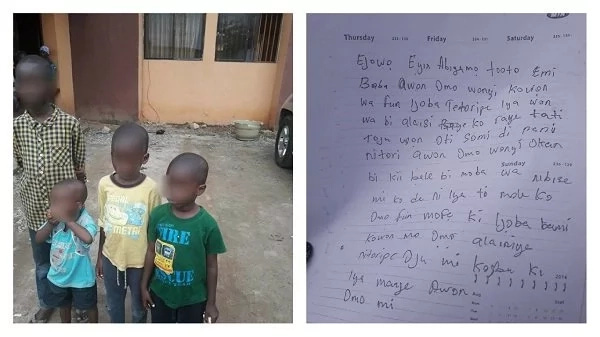 MTN
Thursday Friday Saturday
Ejowo Eyin Abiyamo tooto Emi
Baba Awon Omo wonyi, kowon
wa fun Ijoba Tetoripe Iya won
wa bi alaisi ko raye tati
Toju won Oti Somi di
nitori awon Omo wonyi Okan
Sunday
bi kii bale bi moba wa nibise
mi ko de ni Iya to mole ko
Omo fun mofe ki Ijoba bami
kowon mo Omo alainiye
nitoripe Oju mi ki
2014
Iya marye Awon
Omo mi
METRO
FIRE
RESCUE